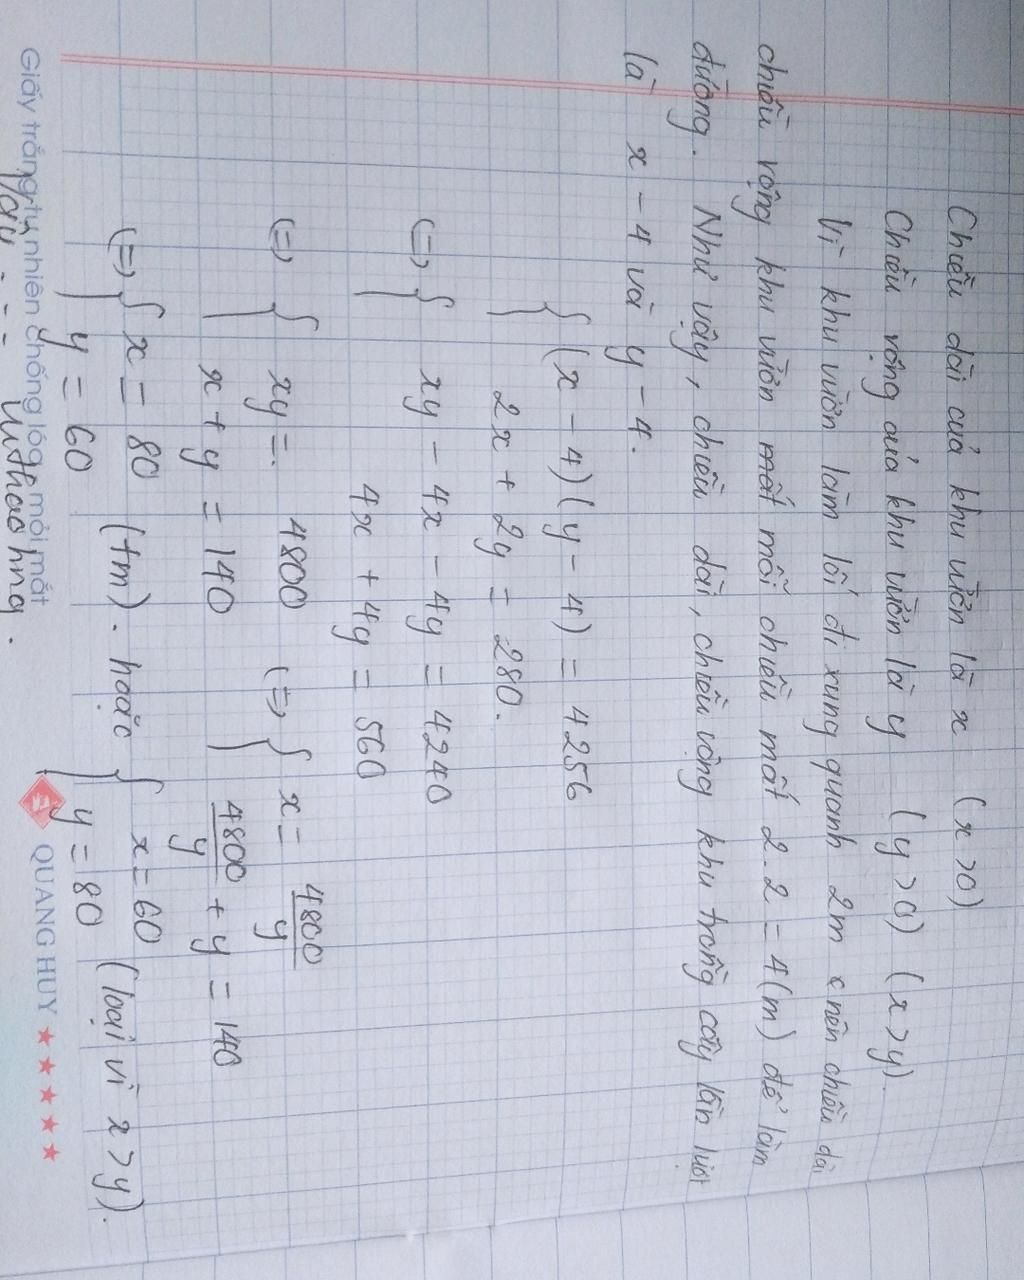 Chiều dài của khu vườn là x (x > 0)
Chiều rộng của khu vườn là y (y > 0) (x > y)
Vì khu vườn làm lối đi xung quanh 2m nên chiều dài
chiều rộng khu vườn mất mỗi chiều mất 2.2 = 4(m) để làm
đường. Như vậy, chiều dài, chiều rộng khu trồng cây lần lượt
là x - 4 và y - 4.
{ (x - 4)(y - 4) = 4256
2x + 2y = 280.
(=) { xy - 4x - 4y = 4240
4x + 4y = 560
(=) { xy = 4800 (=) { x = 4800/y
x + y = 140 4800/y + y = 140
(=) { x = 80 (tm). hoặc { x = 60 (loại vì x > y).
y = 60 y = 80
Giấy trắng tự nhiên chống lóa mỏi mắt
QUANG HUY ★★★★★